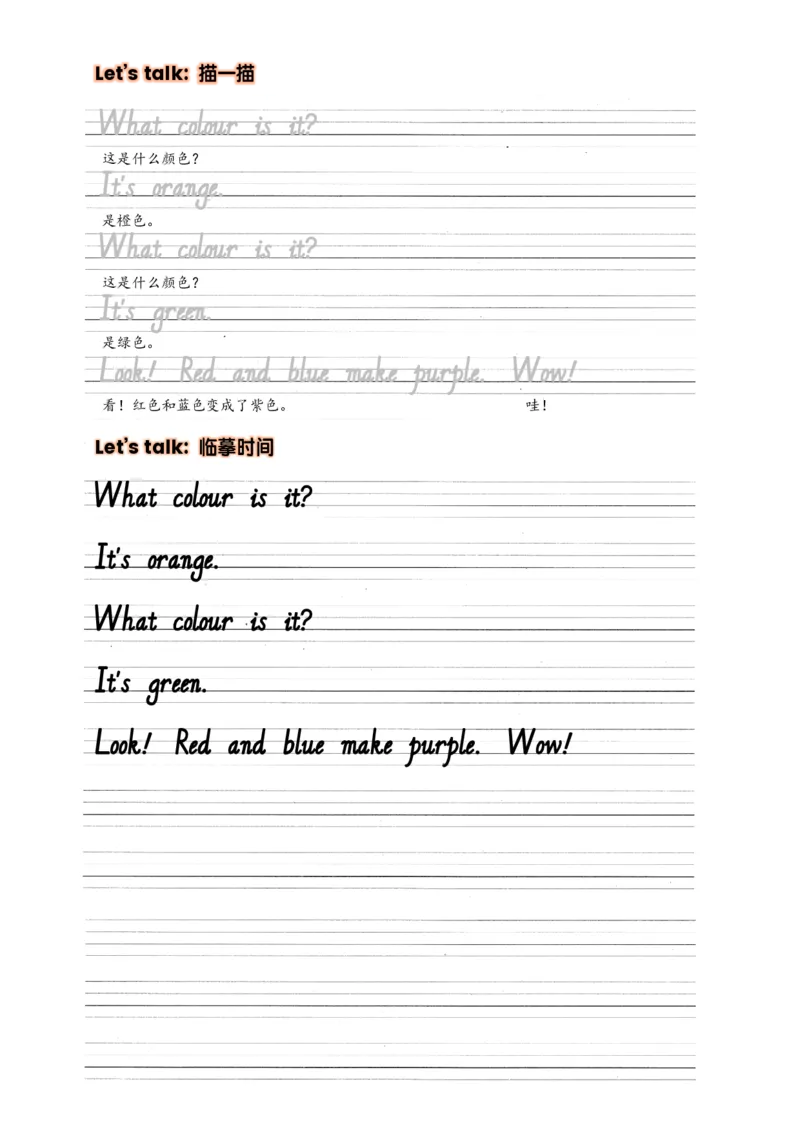 Let's talk: 描一描
What colour is it?
这是什么颜色?
It's orange.
是橙色。
What colour is it?
这是什么颜色?
It's green.
是绿色。
Look! Red and blue make purple. Wow!
看! 红色和蓝色变成了紫色。 哇!
Let's talk: 临摹时间
What colour is it?
It's orange.
What colour is it?
It's green.
Look! Red and blue make purple. Wow!